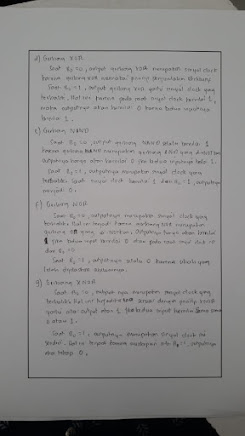 d) Gerbang XOR
Saat B0 = 0, output gerbang XOR merupakan sinyal clock
karena gerbang XOR memiliki prinsip penjumlahan
Saat B0 = 1, output gerbang XOR yaitu sinyal clock yang
terbalik. Hal ini karena pada saat sinyal clock bernilai 1,
maka outputnya akan bernilai 0 karena kedua inputnya
bernilai 1.
e) Gerbang NAND
Saat B0 = 0, output gerbang NAND selalu bernilai 1
karena gerbang NAND merupakan gerbang AND yang
outputnya hanya akan bernilai 0 jika kedua inputnya 1.
Saat B0 = 1, outputnya merupakan sinyal clock yang
terbalik. Saat sinyal clock bernilai 1 dan B0 = 1, outputnya
menjadi 0.
f) Gerbang NOR
Saat B0 = 0, outputnya merupakan sinyal clock yang
terbalik. Hal ini terjadi karena gerbang NOR merupakan
gerbang OR yang outputnya hanya akan bernilai
1 jika kedua input bernilai 0 dan pada saat
B0 = 0
Saat B0 = 1, outputnya selalu 0 karena
sebelumnya.
g) Gerbang XNOR
Saat B0 = 0, output nya merupakan sinyal clock yang
terbalik. Hal ini karena sesuai dengan prinsip
yaitu akan output akan 1 jika kedua input bernilai sama
0 atau 1.
Saat B0 = 1, outputnya merupakan sinyal clock itu
sendiri. Hal ini terjadi karena B0 = 1, outputnya
akan tetap 0.